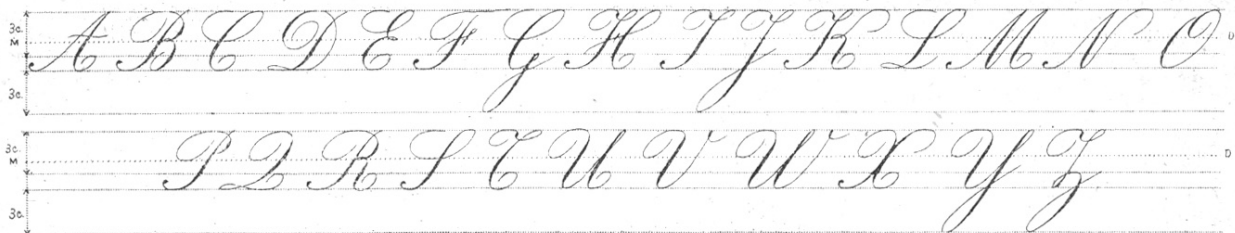 3c. M A B C D E F G H I J K L M N O D
3c.
3c. M P Q R S T U V W X Y Z D
3c.